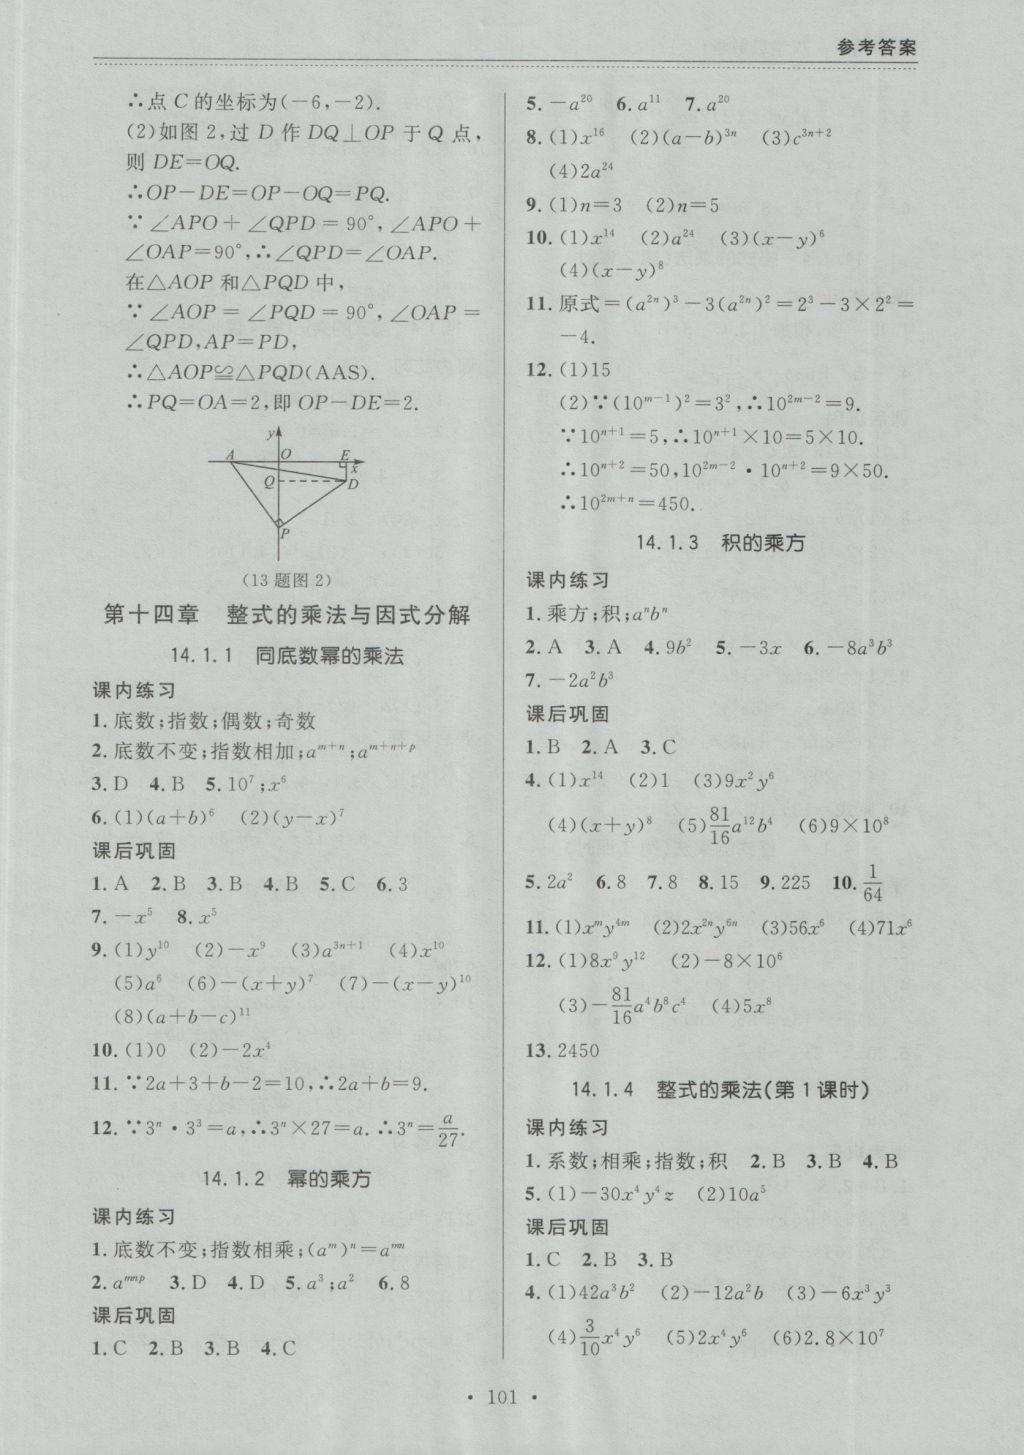 参考答案
∴点 C 的坐标为(-6,-2).
(2)如图 2,过 D 作 DQ⊥OP 于 Q 点,
则 DE=OQ.
∴OP-DE=OP-OQ=PQ.
∵∠APO+∠QPD=90°,∠APO+
∠OAP=90°,∴∠QPD=∠OAP.
在△AOP 和△PQD 中,
∵∠AOP=∠PQD=90°,∠OAP=
∠QPD,AP=PD,
∴△AOP≌△PQD(AAS).
∴PQ=OA=2,即 OP-DE=2.
y
A O E
x
Q D
P
(13 题图 2)
第十四章 整式的乘法与因式分解
14.1.1 同底数幂的乘法
课内练习
1.底数;指数;偶数;奇数
2.底数不变;指数相加;a^{m+n};a^{m+n+p}
3.D 4.B 5.10^7;x^6
6.(1)(a+b)^6 (2)(y-x)^7
课后巩固
1.A 2.B 3.B 4.B 5.C 6.3
7.-x^5 8.x^5
9.(1)y^{10} (2)-x^9 (3)a^{3n+1} (4)x^{10}
(5)a^6 (6)-(x+y)^7 (7)-(x-y)^{10}
(8)(a+b-c)^{11}
10.(1)0 (2)-2x^4
11.∵2a+3+b-2=10,∴2a+b=9.
12.∵3^n·3^3=a,∴3^n×27=a.∴3^n=\frac{a}{27}.
14.1.2 幂的乘方
课内练习
1.底数不变;指数相乘;(a^m)^n=a^{mn}
2.a^{mnp} 3.D 4.D 5.a^3;a^2 6.8
课后巩固
1.C 2.B 3.B 4.C
5.-a^{20} 6.a^{11} 7.a^{20}
8.(1)x^{16} (2)(a-b)^{3n} (3)c^{3n+2}
(4)2a^{24}
9.(1)n=3 (2)n=5
10.(1)x^{14} (2)a^{24} (3)(x-y)^6
(4)(x-y)^8
11.原式=(a^{2n})^3-3(a^{2n})^2=2^3-3×2^2=
-4.
12.(1)15
(2)∵(10^{m-1})^2=3^2,∴10^{2m-2}=9.
∵10^{n+1}=5,∴10^{n+1}×10=5×10.
∴10^{n+2}=50,10^{2m-2}·10^{n+2}=9×50.
∴10^{2m+n}=450.
14.1.3 积的乘方
课内练习
1.乘方;积;a^nb^n
2.A 3.A 4.9b^2 5.-3x 6.-8a^3b^3
7.-2a^2b^3
课后巩固
1.B 2.A 3.C
4.(1)x^{14} (2)1 (3)9x^2y^6
(4)(x+y)^8 (5)\frac{81}{16}a^{12}b^4 (6)9×10^8
5.2a^2 6.8 7.8 8.15 9.225 10.\frac{1}{64}
11.(1)x^my^{4m} (2)2x^{2n}y^{6n} (3)56x^6 (4)71x^6
12.(1)8x^9y^{12} (2)-8×10^6
(3)-\frac{81}{16}a^4b^8c^4 (4)5x^8
13.2450
14.1.4 整式的乘法(第 1 课时)
课内练习
1.系数;相乘;指数;积 2.B 3.B 4.B
5.(1)-30x^4y^4z (2)10a^5
课后巩固
1.C 2.B 3.B
4.(1)42a^3b^2 (2)-12a^2b (3)-6x^3y^3
(4)\frac{3}{10}x^4y^6 (5)2x^4y^6 (6)2.8×10^7
· 101 ·